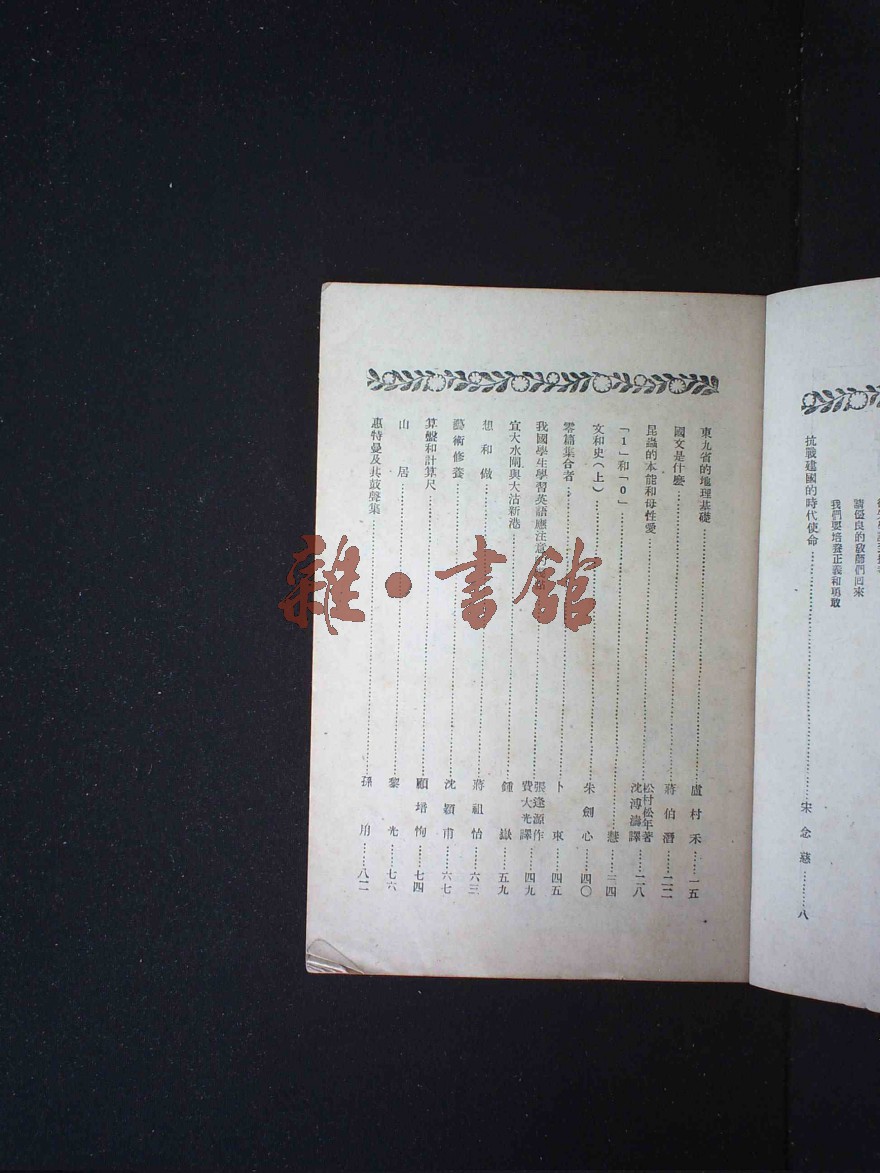 請優良的敎師們回來
我們要培養正義和勇敢
抗戰建國的時代使命……宋念慈……八
東九省的地理基礎……盧村禾……一五
國文是什麽……蔣伯潛……二二
昆蟲的本能和母性愛……松村松年著 沈溥濤譯……二八
「1」和「0」……慧……三四
文和史(上)……朱劍心……四〇
零篇集合者……卜東……四五
我國學生學習英語應注意……張逢源作 費大光譯……四九
宜大水閘與大沽新港……鍾嶽……五九
想和做……蔣祖怡……六三
藝術修養……沈穎甫……六七
算盤和計算尺……顧培恂……七四
山居……黎光……七六
惠特曼及其鼓聲集……孫用……八二
雜·書館